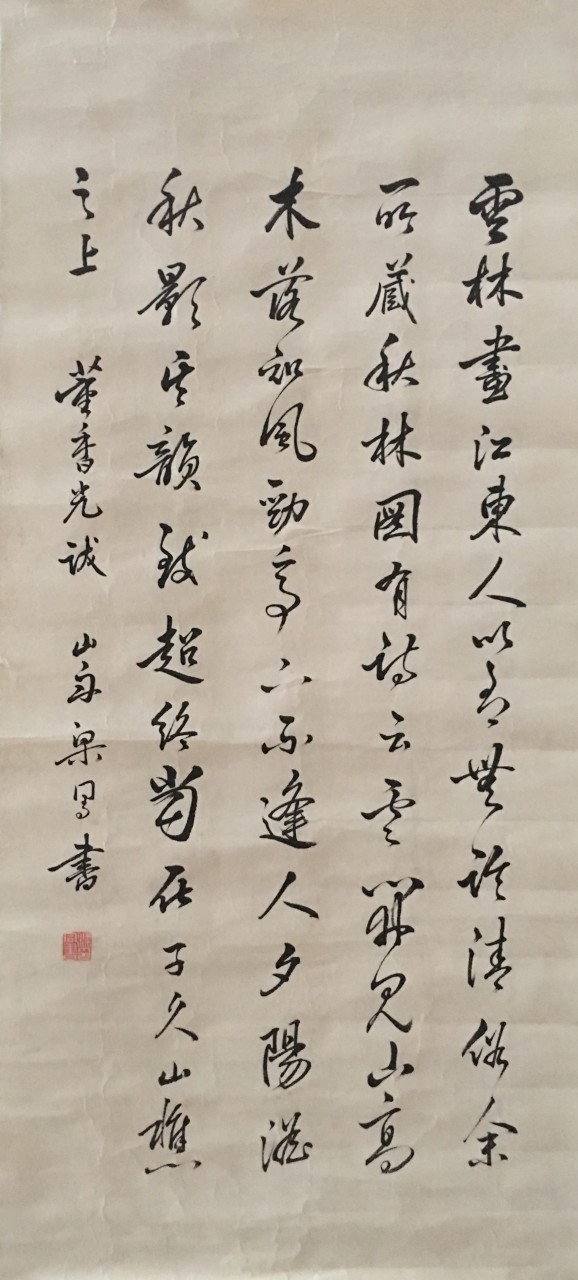 雲林畫江東人以有無論清俗余
所藏秋林圖有詩云雲開見山高
木落知風勁亭下不逢人夕陽澹
秋影其韻致超絕當在子久山樵
之上 董香光識 山舟梁同書